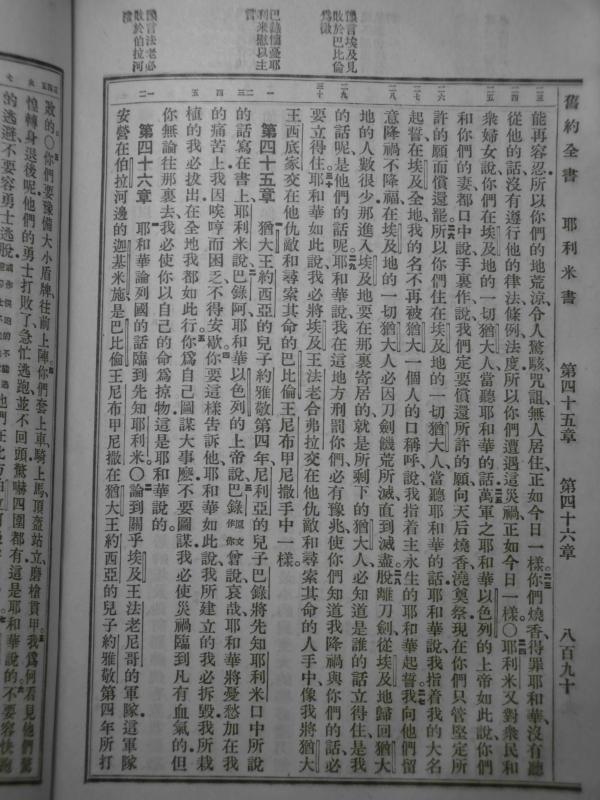 舊約全書 耶利米書 第四十五章 第四十六章 八百九十
豫言埃及見
敗於巴比倫
爲徵
巴錄懼憂耶
利米慰以主
言
豫言法老必
敗於伯拉河
能再容忍所以你們的地荒涼令人驚駭咒詛無人居住正如今日一樣你們燒香得罪耶和華沒有聽
從他的話沒有遵行他的律法條例法度所以你們遭遇這災禍正如今日一樣〇耶利米又對衆民和
衆婦女說你們在埃及地的一切猶大人當聽耶和華的話萬軍之耶和華以色列的上帝如此說你們
和你們的妻都口中說手裏作說我們定要償還所許的願向天后燒香澆奠祭現在你們只管堅定所
許的願而償還罷所以你們住在埃及地的一切猶大人當聽耶和華的話耶和華說我指着我的大名
起誓在埃及全地我的名不再被猶大一個人的口稱呼說我指着主永生的耶和華起誓我向他們留
意降禍不降福在埃及地的一切猶大人必因刀劍饑荒所滅直到滅盡脫離刀劍從埃及地歸回猶大
地的人數很少那進入埃及地要在那裏寄居的就是所剩下的猶大人必知道是誰的話立得住是我
的話呢是他們的話呢耶和華說我在這地方刑罰你們必有豫兆使你們知道我降禍與你們的話必
要立得住耶和華如此說我必將埃及王法老合弗拉交在他仇敵和尋索其命的人手中像我將猶大
王西底家交在他仇敵和尋索其命的巴比倫王尼布甲尼撒手中一樣
第四十五章 猶大王約西亞的兒子約雅敬第四年尼利亞的兒子巴錄將先知耶利米口中所說
的話寫在書上耶利米說巴錄阿耶和華以色列的上帝說巴錄原文作你曾說哀哉耶和華將憂愁加在我
的痛苦上我因唉哼而困乏不得安歇你要這樣告訴他耶和華如此說我所建立的我必拆毀我所栽
植的我必拔出在全地我都如此行你爲自己圖謀大事麼不要圖謀我必使災禍臨到凡有血氣的但
你無論往那裏去我必使你以自己的命爲掠物這是耶和華說的
第四十六章 耶和華論列國的話臨到先知耶利米〇論到關乎埃及王法老尼哥的軍隊這軍隊
安營在伯拉河邊的迦基米施是巴比倫王尼布甲尼撒在猶大王約西亞的兒子約雅敬第四年所打
敗的〇你們要豫備大小盾牌往前上陣你們套上車騎上馬頂盔站立磨槍貫甲我爲何看見他們驚
惶轉身退後呢他們的勇士打敗了急忙逃跑並不回頭驚嚇四圍都有這是耶和華說的不要容快跑
的逃避不要容勇士逃脫